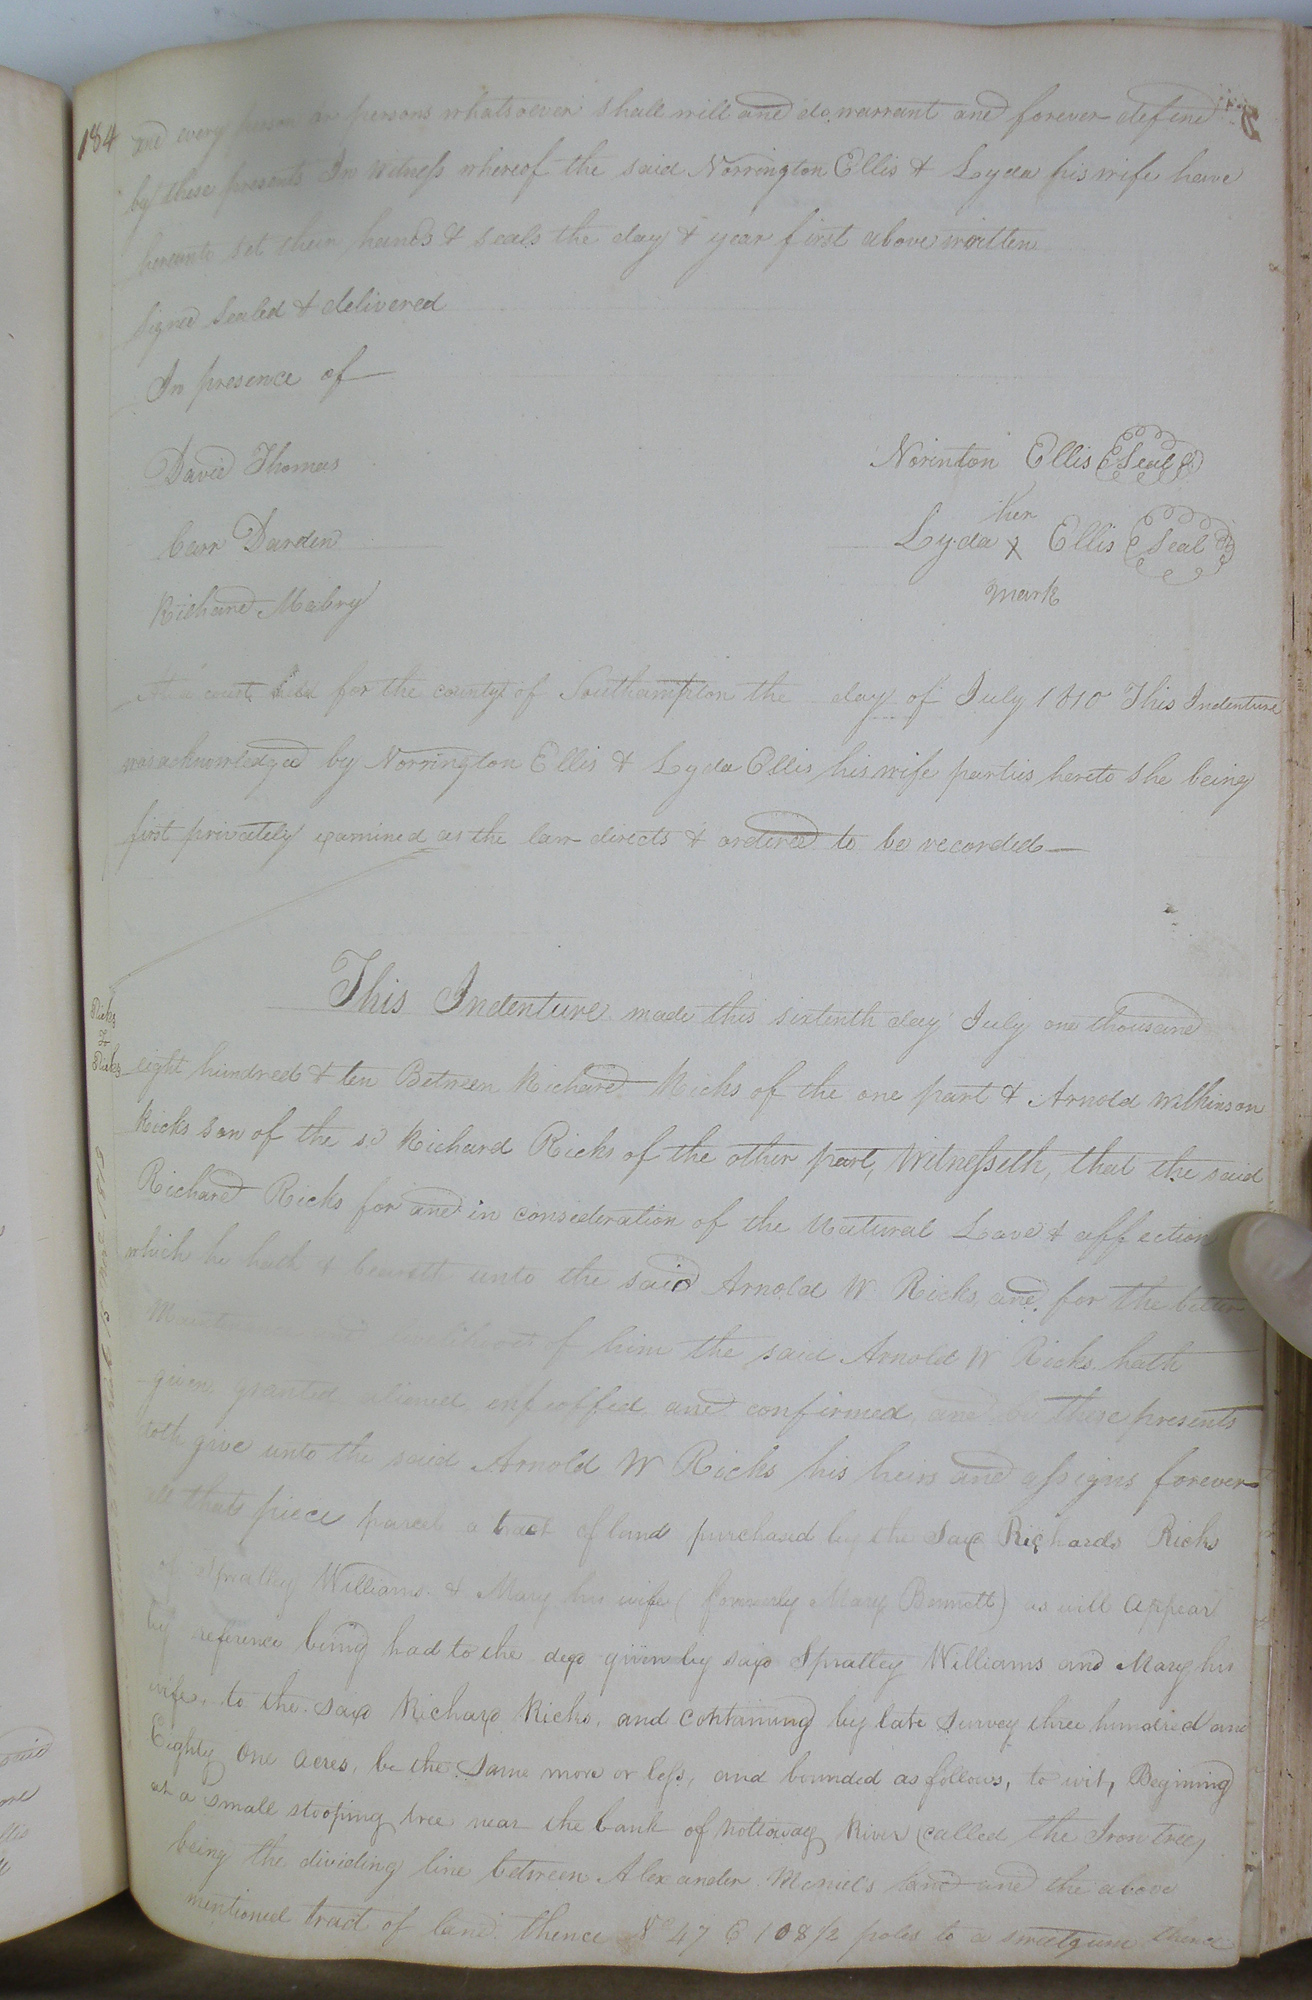 184
and every person or persons whatsoever shall will and do warrant and forever defend
by these presents In Witness whereof the said Norrington Ellis & Lyda his wife have
hereunto set their hands & seals the day & year first above written
Signed Sealed & delivered
In presence of
David Thomas
Norinton Ellis Seal
her
Carr Darden
Lyda X Ellis Seal
mark
Richard Mabry
At a court held for the county of Southampton the day of July 1810 This Indenture
was acknowledged by Norrington Ellis & Lyda Ellis his wife parties hereto she being
first privately examined as the law directs & ordered to be recorded
This Indenture made this sixtenth day July one thousand
Ricks
To
Ricks
eight hundred & ten Between Richard Ricks of the one part & Arnold Wilkinson
Ricks son of the sd Richard Ricks of the other part, Witnesseth, that the said
Richard Ricks for and in consideration of the Natural Love & affection
which he hath & beareth unto the said Arnold W Ricks, and for the better
Maintenance and livelihood of him the said Arnold W Ricks hath
given, granted aliened enfeoffed and confirmed, and by these presents
doth give unto the said Arnold W Ricks his heirs and assigns forever
all that piece parcel or tract of land purchased by the Said Richards Ricks
of Spratley Williams & Mary his wife (formerly Mary Bennett) as will appear
by reference being had to the deed given by said Spratley Williams and Mary his
wife, to the said Richard Ricks, and containing by late survey three hundred and
Eighty one acres, be the same more or less, and bounded as follows, to wit, Begining
at a small stooping tree near the bank of Nottoway River (called the Iron tree)
being the dividing line between Alexander Mcniels land and the above
mentioned tract of land thence 47 E 108 1/2 poles to a sweetgum thence